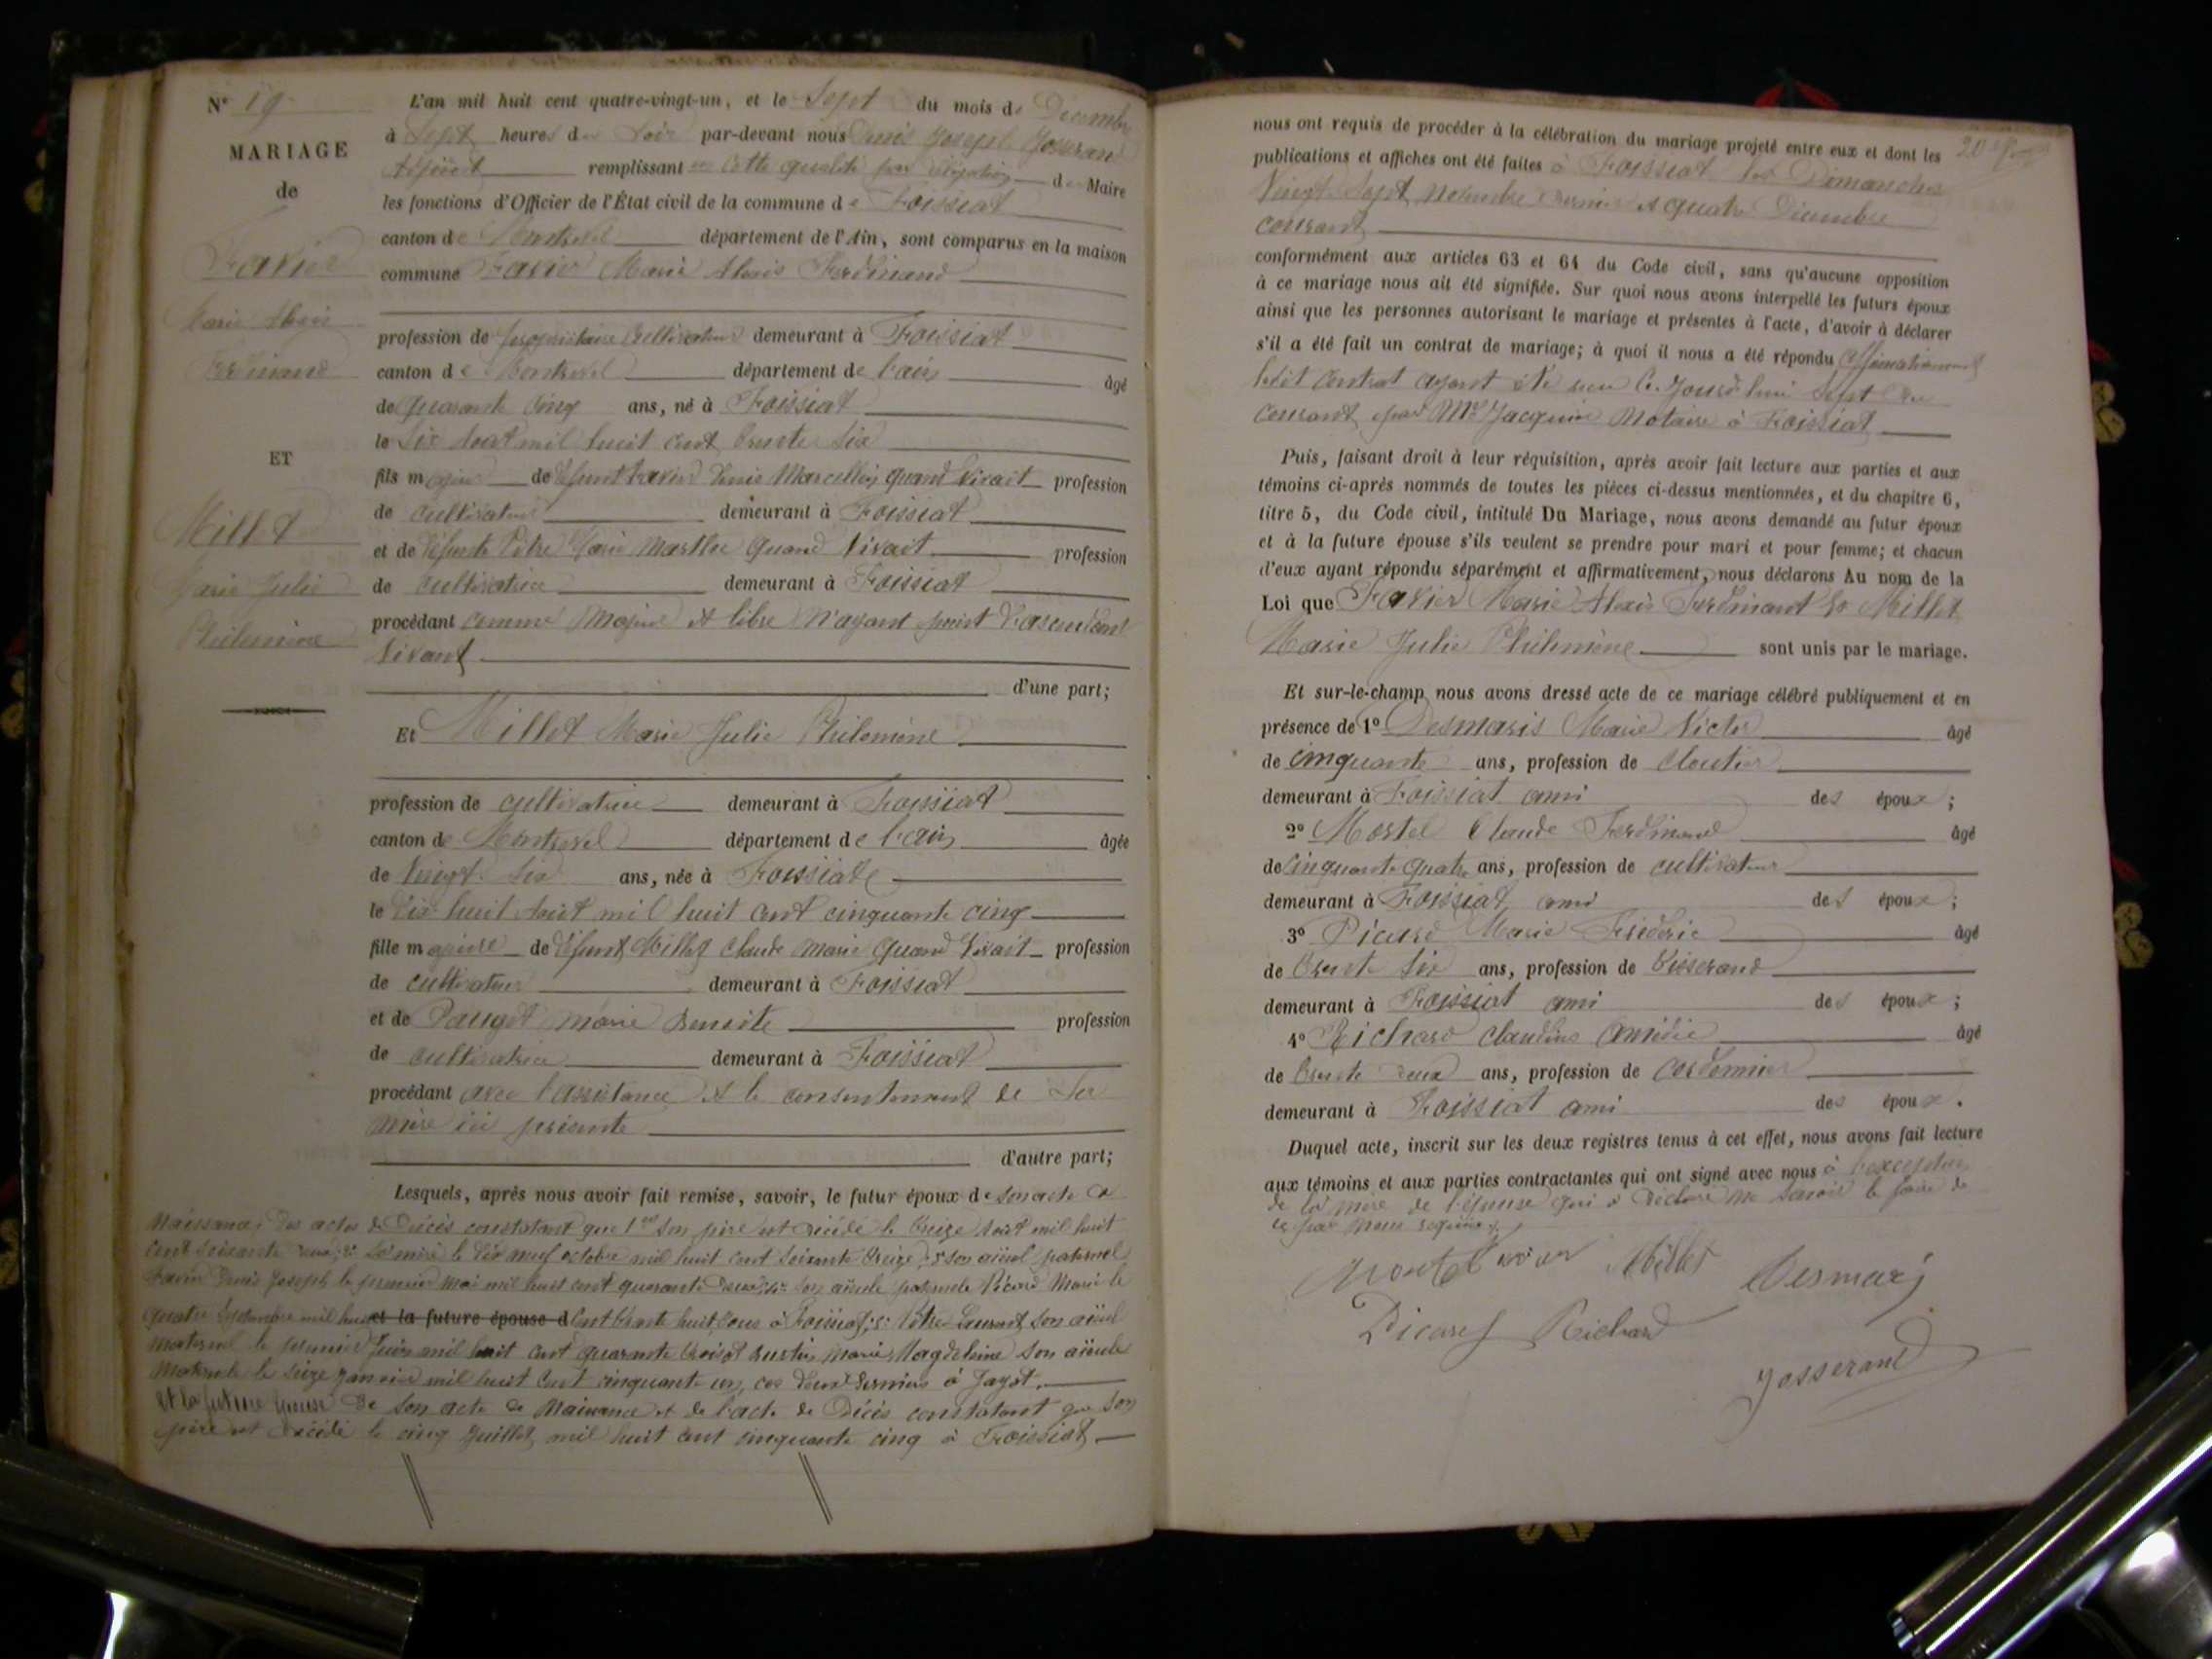 N° 19
MARIAGE
de
Favier
Marie Alexis
Ferdinand
ET
Millet
Marie Julie
Philomène
L'an mil huit cent quatre-vingt-un, et le Sept du mois de Decembre
à Sept heures du Soir par-devant nous Denis Joseph Josserand
Adjoint remplissant en cette qualité par délégation du Maire
les fonctions d'Officier de l'État civil de la commune de Foissiat
canton de Montrevel département de l'Ain, sont comparus en la maison
commune Favier Marie Alexis Ferdinand
profession de propriétaire Cultivateur demeurant à Foissiat
canton de Montrevel département de l'ain âgé
de quarante cinq ans, né à Foissiat
le Six Aout mil huit cent trente Six
fils majeur de défunt Favier Denis Marcellin quand Vivait profession
de cultivateur demeurant à Foissiat
et de défunte Pitre Marie Marthe quand Vivait profession
de cultivatrice demeurant à Foissiat
procédant comme Majeur et libre N'ayant point d'ascendant
Vivant
d'une part;
Et Millet Marie Julie Philomène
profession de cultivatrice demeurant à Foissiat
canton de Montrevel département de l'ain âgée
de Vingt Six ans, née à Foissiat
le Dix huit Aout mil huit cent cinquante cinq
fille majeure de défunt Millet Claude Marie quand Vivait profession
de cultivateur demeurant à Foissiat
et de Pauget marie Benoite profession
de cultivatrice demeurant à Foissiat
procédant avec l'assistance et le consentement de Sa
mère ici présente
d'autre part;
Lesquels, après nous avoir fait remise, savoir, le futur époux de Son acte de
Naissance, des actes de Décès constatant que 1° Son père est décédé le treize Aout mil huit
cent soixante deux; 2° Sa mère le Dix neuf octobre mil huit cent Soixante treize; 3° Son aïeul paternel
Favier Denis Joseph le premier Mai mil huit cent quarante deux; 4° Son aïeule paternelle Picard Marie le
quatre Septembre mil huit et la future épouse d cent trente huit, tous à Foissiat; 5° Pitre Laurent, Son aïeul
maternel le premier Juin mil huit cent quarante trois et marie Magdeleine Son aïeule
Maternelle le seize Janvier mil huit cent cinquante un, ces deux derniers à Jayat.
Et la future épouse De Son acte de Naissance et de l'acte de Décès constatant que Son
père est décédé le cinq Juillet mil huit cent cinquante cinq à Foissiat
nous ont requis de procéder à la célébration du mariage projeté entre eux et dont les
publications et affiches ont été faites à Foissiat les Dimanches
Vingt Sept Novembre dernier et quatre Décembre
courant
conformément aux articles 63 et 64 du Code civil, sans qu'aucune opposition
à ce mariage nous ait été signifiée. Sur quoi nous avons interpellé les futurs époux
ainsi que les personnes autorisant le mariage et présentes à l'acte, d'avoir à déclarer
s'il a été fait un contrat de mariage; à quoi il nous a été répondu affirmativement
ledit contrat ayant été reçu ce Jourd'hui Sept du
courant par Me Jacquin Notaire à Foissiat
Puis, faisant droit à leur réquisition, après avoir fait lecture aux parties et aux
témoins ci-après nommés de toutes les pièces ci-dessus mentionnées, et du chapitre 6,
titre 5, du Code civil, intitulé Du Mariage, nous avons demandé au futur époux
et à la future épouse s'ils veulent se prendre pour mari et pour femme; et chacun
d'eux ayant répondu séparément et affirmativement, nous déclarons Au nom de la
Loi que Favier Marie Alexis Ferdinand & Millet
Marie Julie Philomène sont unis par le mariage.
Et sur-le-champ nous avons dressé acte de ce mariage célébré publiquement et en
présence de 1° Desmaris Marie Victor âgé
de cinquante ans, profession de Cloutier
demeurant à Foissiat ami des époux;
2° Mortel Claude Ferdinand âgé
de cinquante quatre ans, profession de cultivateur
demeurant à Foissiat ami des époux;
3° Picard Marie Fréderic âgé
de trente Six ans, profession de tisserand
demeurant à Foissiat ami des époux;
4° Richard Claudius Amédée âgé
de trente deux ans, profession de cordonnier
demeurant à Foissiat ami des époux.
Duquel acte, inscrit sur les deux registres tenus à cet effet, nous avons fait lecture
aux témoins et aux parties contractantes qui ont signé avec nous à l'exception
de la mère de l'épouse qui a déclaré ne savoir le faire de
ce par nous requise.
Favier Millet Desmaris
Picard Richard
Josserand